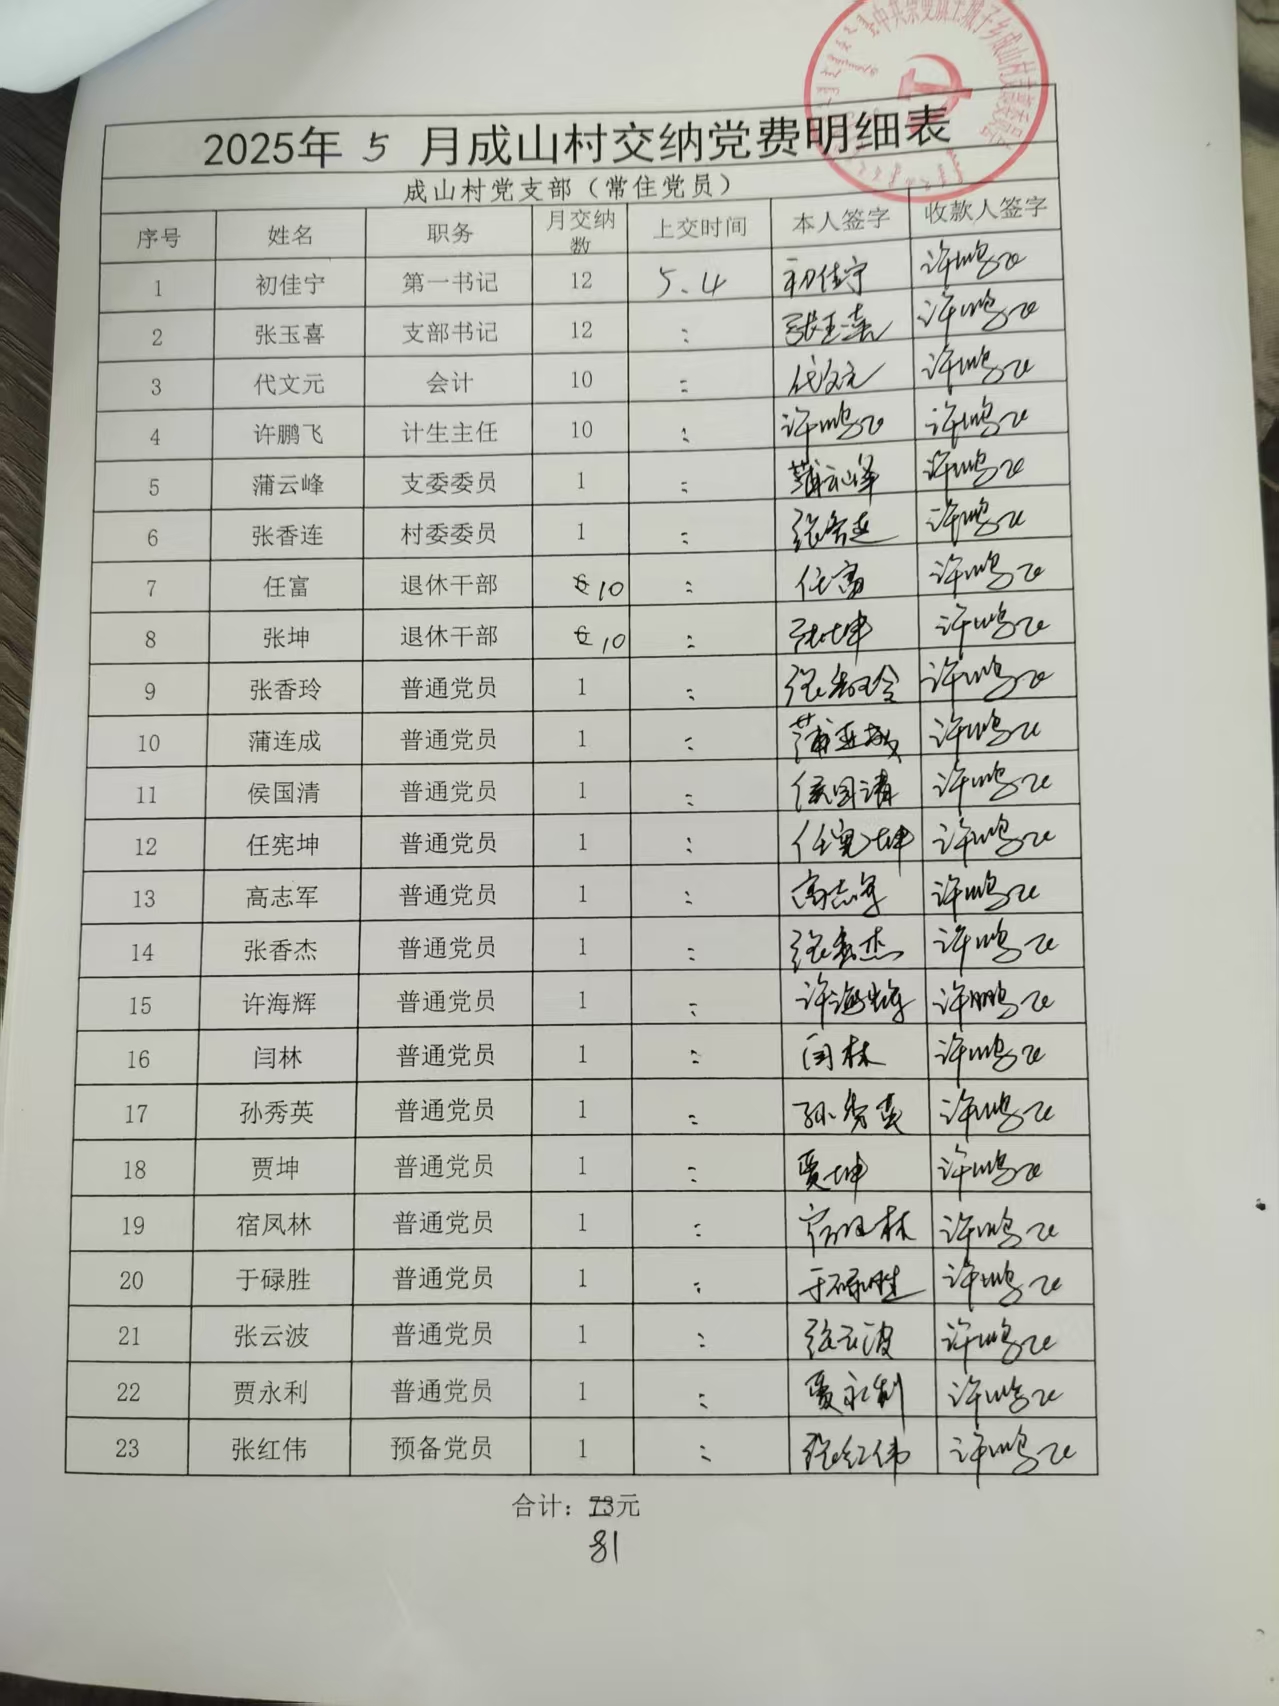 2025年 5 月成山村交纳党费明细表
成山村党支部（常住党员）
序号 姓名 职务 月交纳数 上交时间 本人签字 收款人签字
1 初佳宁 第一书记 12 5.4 初佳宁 许鹏飞
2 张玉喜 支部书记 12 : 张玉喜 许鹏飞
3 代文元 会计 10 : 代文元 许鹏飞
4 许鹏飞 计生主任 10 : 许鹏飞 许鹏飞
5 蒲云峰 支委委员 1 : 蒲云峰 许鹏飞
6 张香连 村委委员 1 : 张香连 许鹏飞
7 任富 退休干部 6 10 : 任富 许鹏飞
8 张坤 退休干部 6 10 : 张坤 许鹏飞
9 张香玲 普通党员 1 : 张香玲 许鹏飞
10 蒲连成 普通党员 1 : 蒲连成 许鹏飞
11 侯国清 普通党员 1 : 侯国清 许鹏飞
12 任宪坤 普通党员 1 : 任宪坤 许鹏飞
13 高志军 普通党员 1 : 高志军 许鹏飞
14 张香杰 普通党员 1 : 张香杰 许鹏飞
15 许海辉 普通党员 1 : 许海辉 许鹏飞
16 闫林 普通党员 1 : 闫林 许鹏飞
17 孙秀英 普通党员 1 : 孙秀英 许鹏飞
18 贾坤 普通党员 1 : 贾坤 许鹏飞
19 宿凤林 普通党员 1 : 宿凤林 许鹏飞
20 于碌胜 普通党员 1 : 于碌胜 许鹏飞
21 张云波 普通党员 1 : 张云波 许鹏飞
22 贾永利 普通党员 1 : 贾永利 许鹏飞
23 张红伟 预备党员 1 : 张红伟 许鹏飞
合计：73元
81